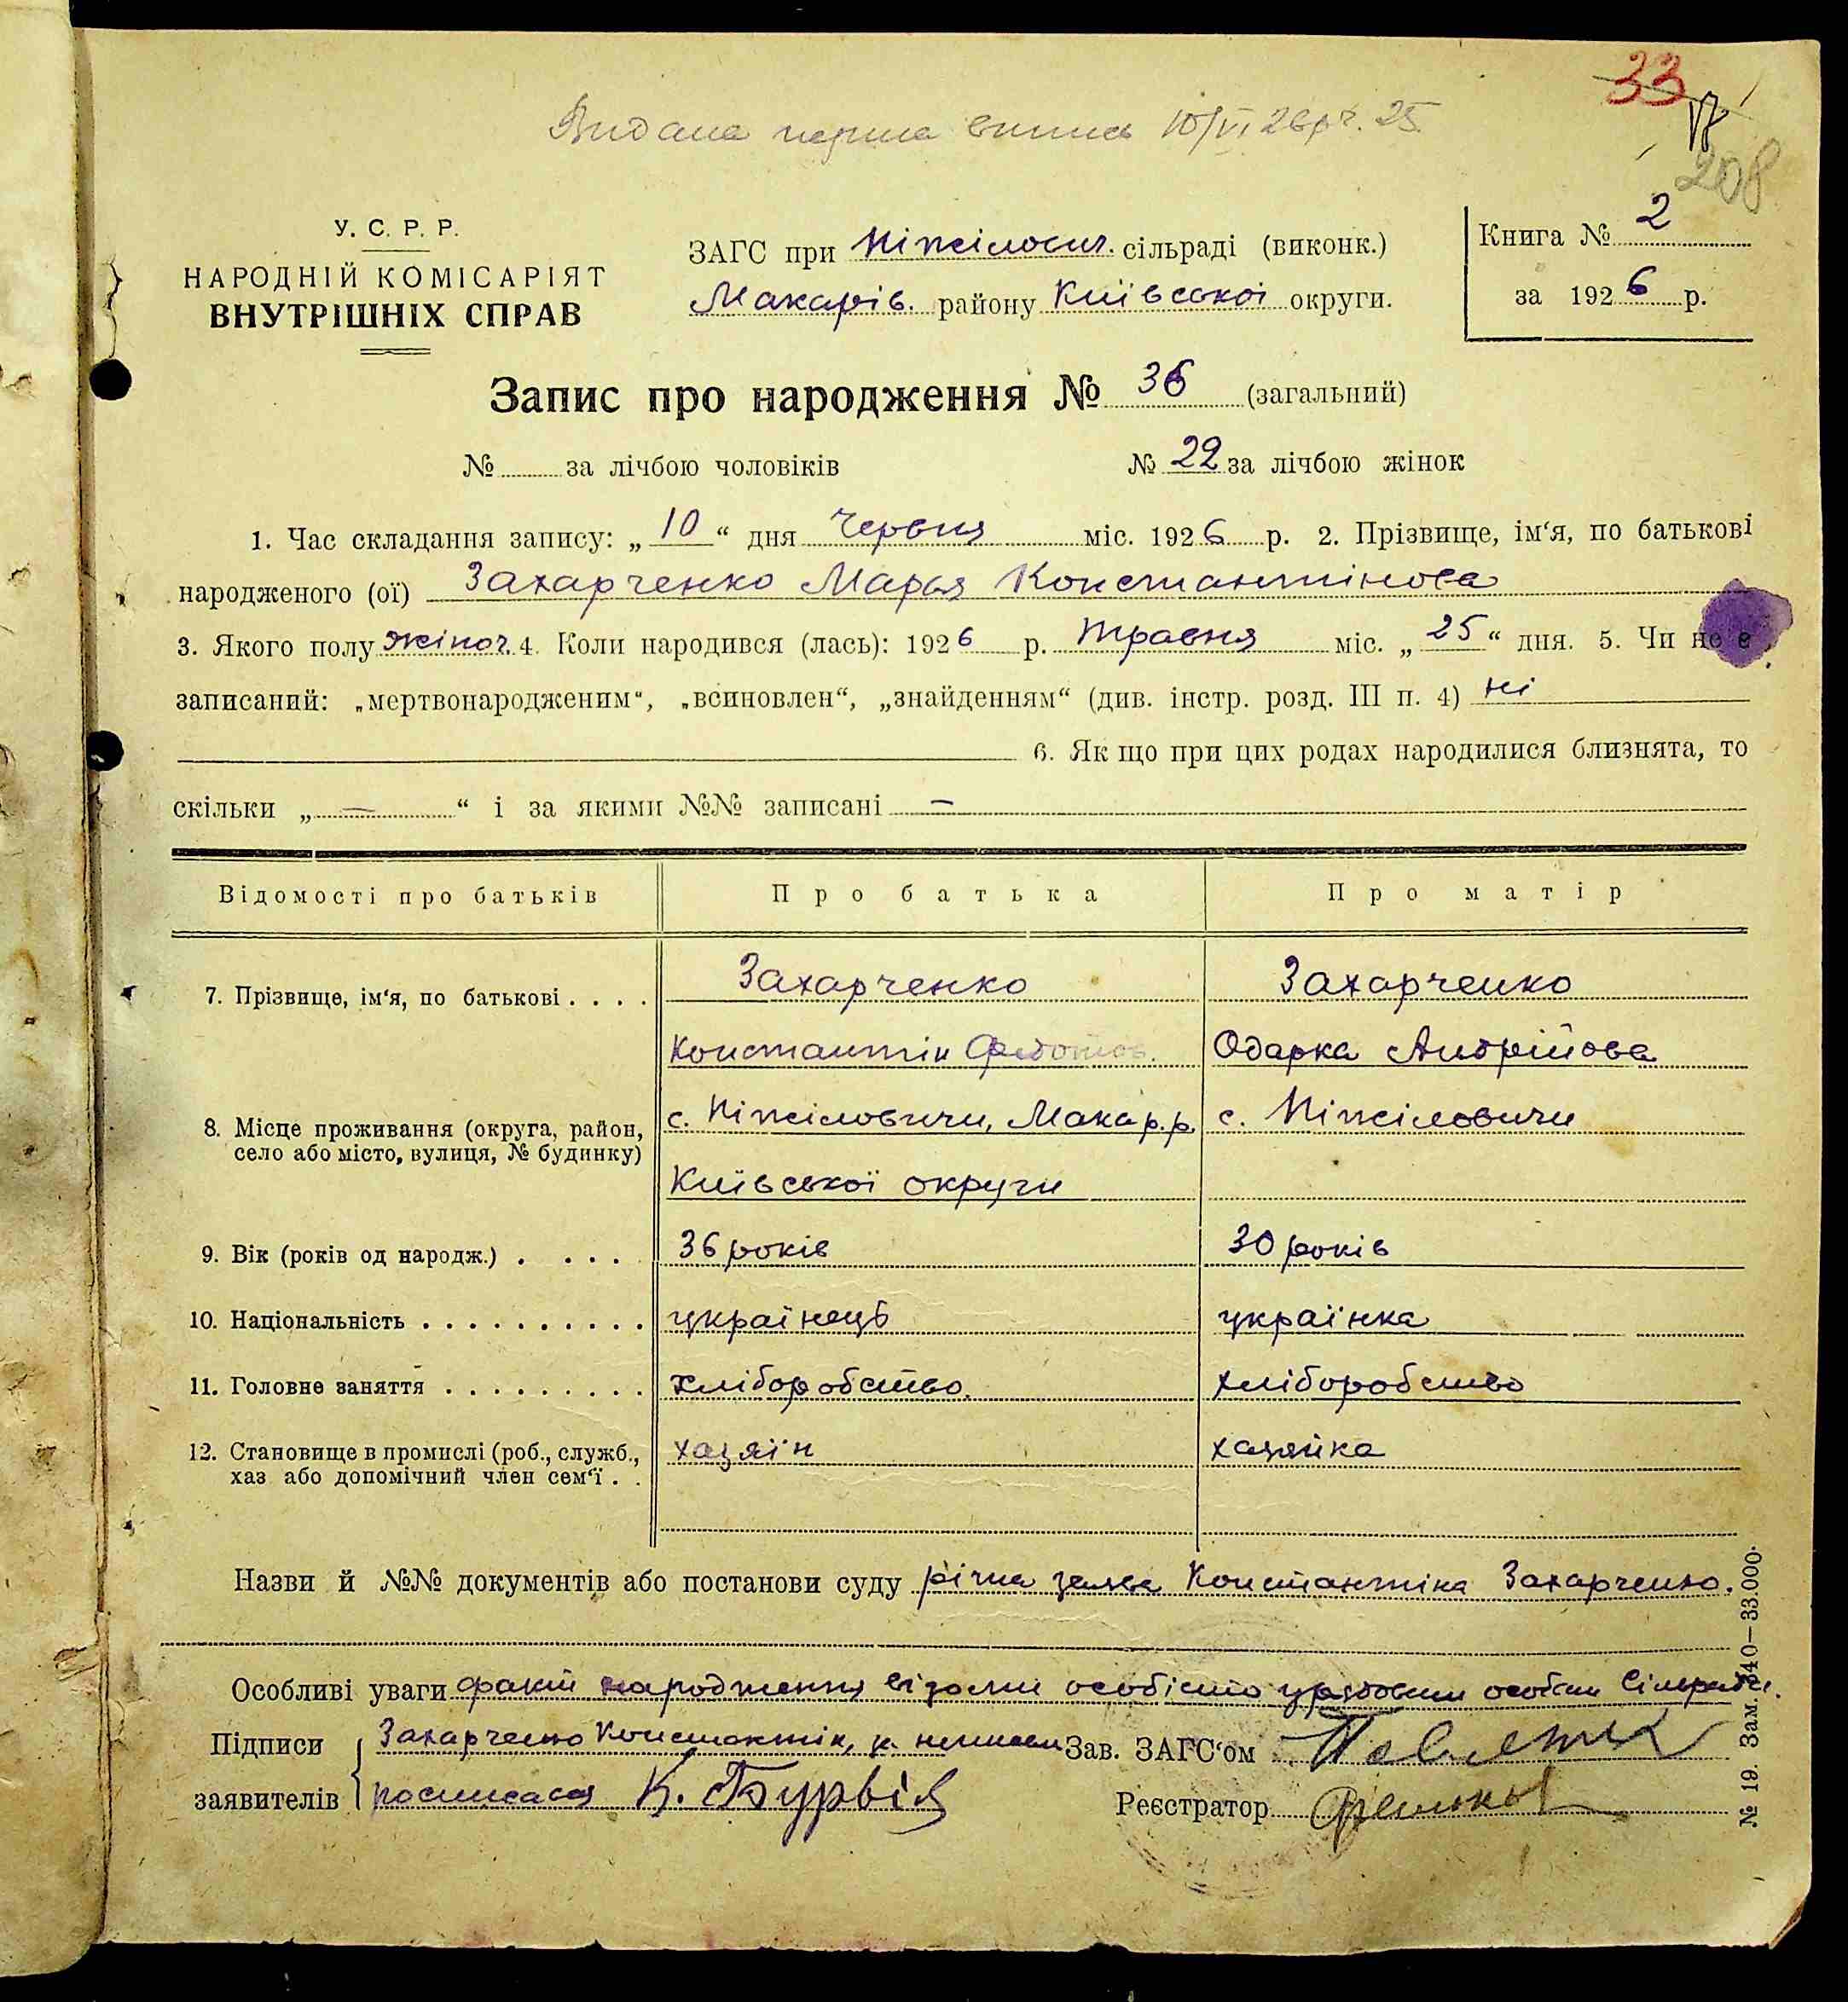 33
17
208
Видана перша випись 10/VI 26 р. ч. 25
У. С. Р. Р.
НАРОДНІЙ КОМІСАРІЯТ
ВНУТРІШНІХ СПРАВ
ЗАГС при Ніжілович. сільраді (виконк.)
Макарів. району Київської округи.
Книга № 2
за 1926 р.
Запис про народження № 36 (загальний)
№ за лічбою чоловіків № 22 за лічбою жінок
1. Час складання запису: „ 10 “ дня Червня міс. 1926 р. 2. Прізвище, ім‘я, по батькові
народженого (ої) Захарченко Марья Константінова
3. Якого полу жіноч. 4. Коли народився (лась): 1926 р. травня міс. „ 25 “ дня. 5. Чи не є
записаний: „мертвонародженим“, „всиновлен“, „знайденням“ (див. інстр. розд. III п. 4) ні
6. Як що при цих родах народилися близнята, то
скільки „ — “ і за якими №№ записані —
Відомості про батьків Про батька Про матір
7. Прізвище, ім‘я, по батькові . . . . Захарченко Захарченко
Константін Федотов. Одарка Андрійова
8. Місце проживання (округа, район, с. Ніжіловичи, Макар. р. с. Ніжіловичи
село або місто, вулиця, № будинку)
Київської округи
9. Вік (років од народж.) . . . . 36 років 30 років
10. Національність . . . . . . . . . . українець українка
11. Головне заняття . . . . . . . . . хліборобство. хліборобство
12. Становище в промислі (роб., служб., хазяїн хазяйка
хаз або допомічний член сем‘ї . .
Назви й №№ документів або постанови суду річна заява Константіна Захарченко.
Особливі уваги факт народження відомий особісто урядовим особам Сільради.
Підписи Захарченко Константін, а неписьм. Зав. ЗАГС‘ом
заявителів росписався К. Реєстратор
№ 19. Зам. 340—33.000.